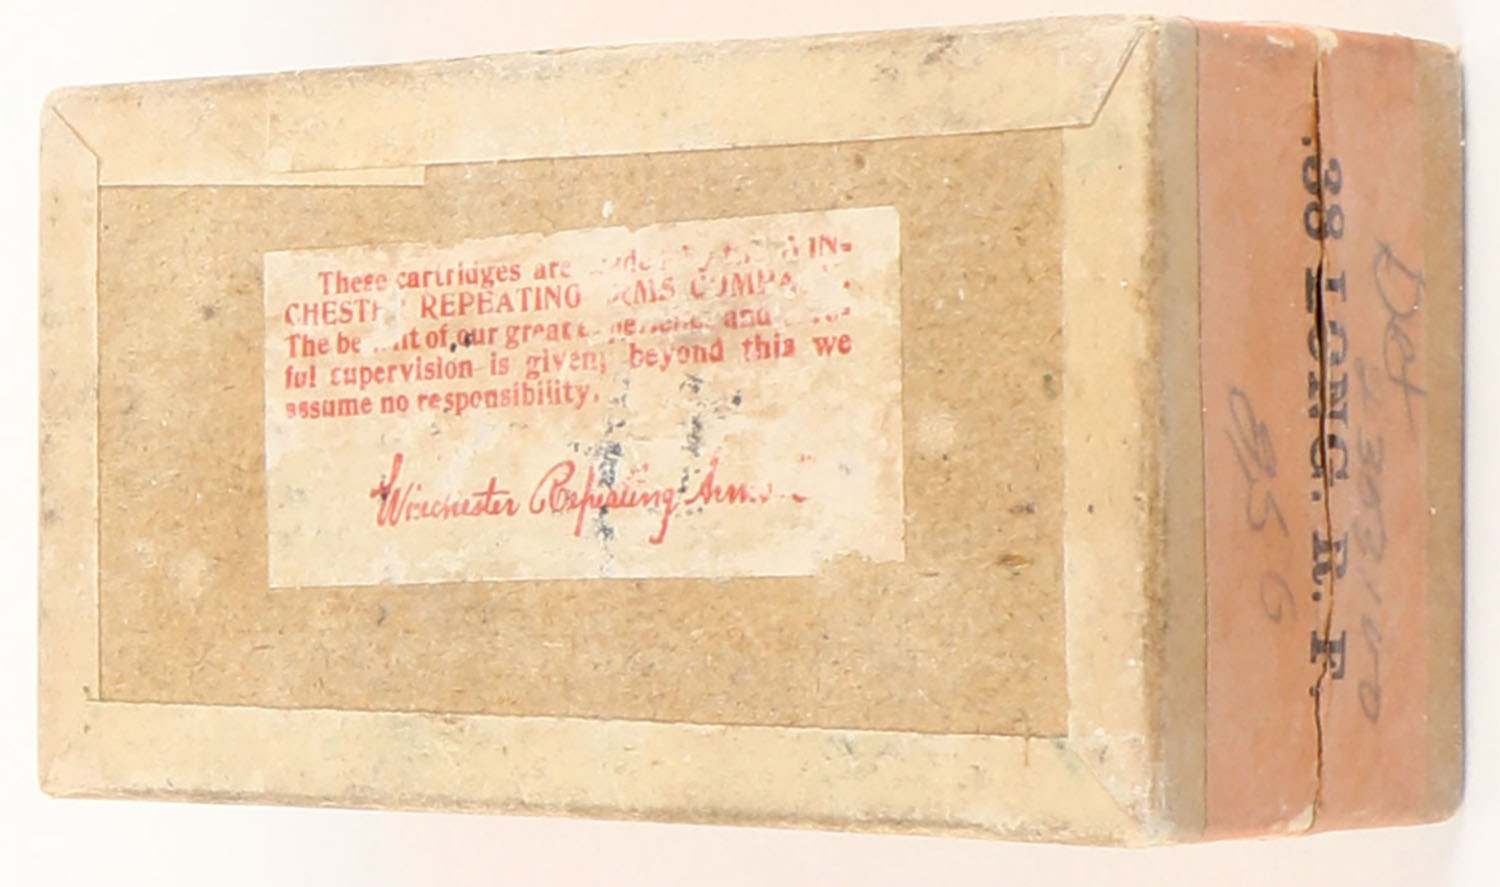 These cartridges are WIN-
CHESTER REPEATING ARMS COMPANY.
The benefit of our great experience and
ful supervision is given; beyond this we
assume no responsibility.
Winchester Repeating Arms
.38 LONG. R. F.